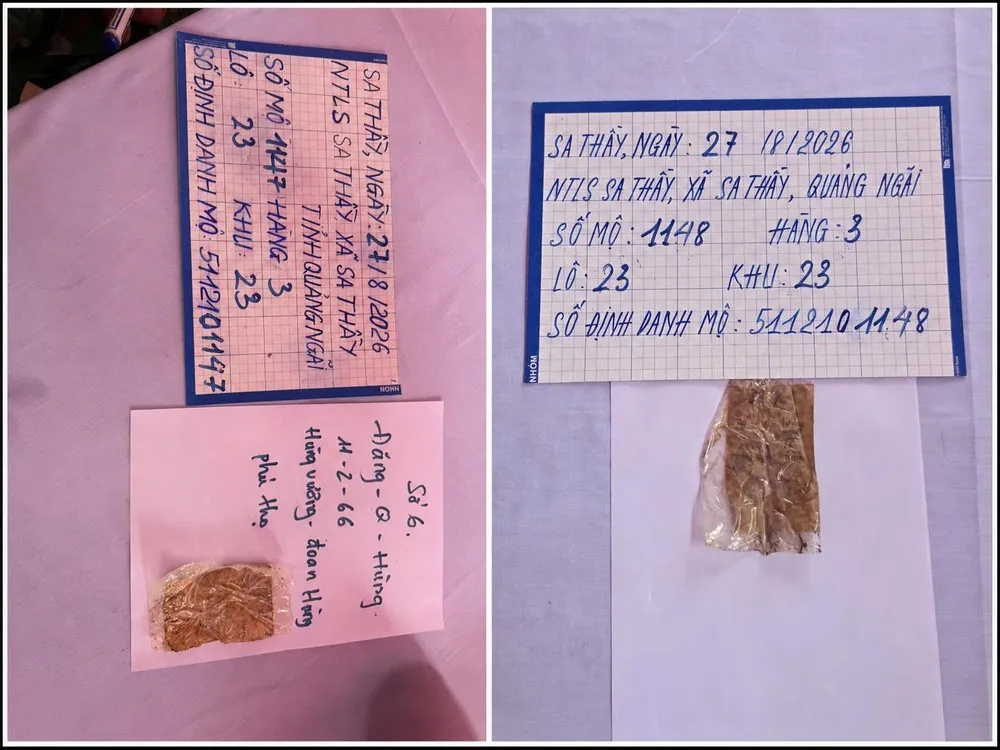 SA THẦY, NGÀY: 27/8/2026
NTLS SA THẦY, XÃ SA THẦY
TỈNH QUẢNG NGÃI
SỐ MỘ 1147 HÀNG 3
LÔ: 23 KHU: 23
SỐ ĐỊNH DANH MỘ: 511210 1147
NHÓM
Số 6.
Đặng - Q - Hùng.
11-2-66
Hùng vương - đoan Hùng
phú thọ
SA THẦY, NGÀY: 27 /8/2026
NTLS SA THẦY, XÃ SA THẦY, QUẢNG NGÃI
SỐ MỘ: 1148 HÀNG: 3
LÔ: 23 KHU: 23
SỐ ĐỊNH DANH MỘ: 511210 1148
NHÓM